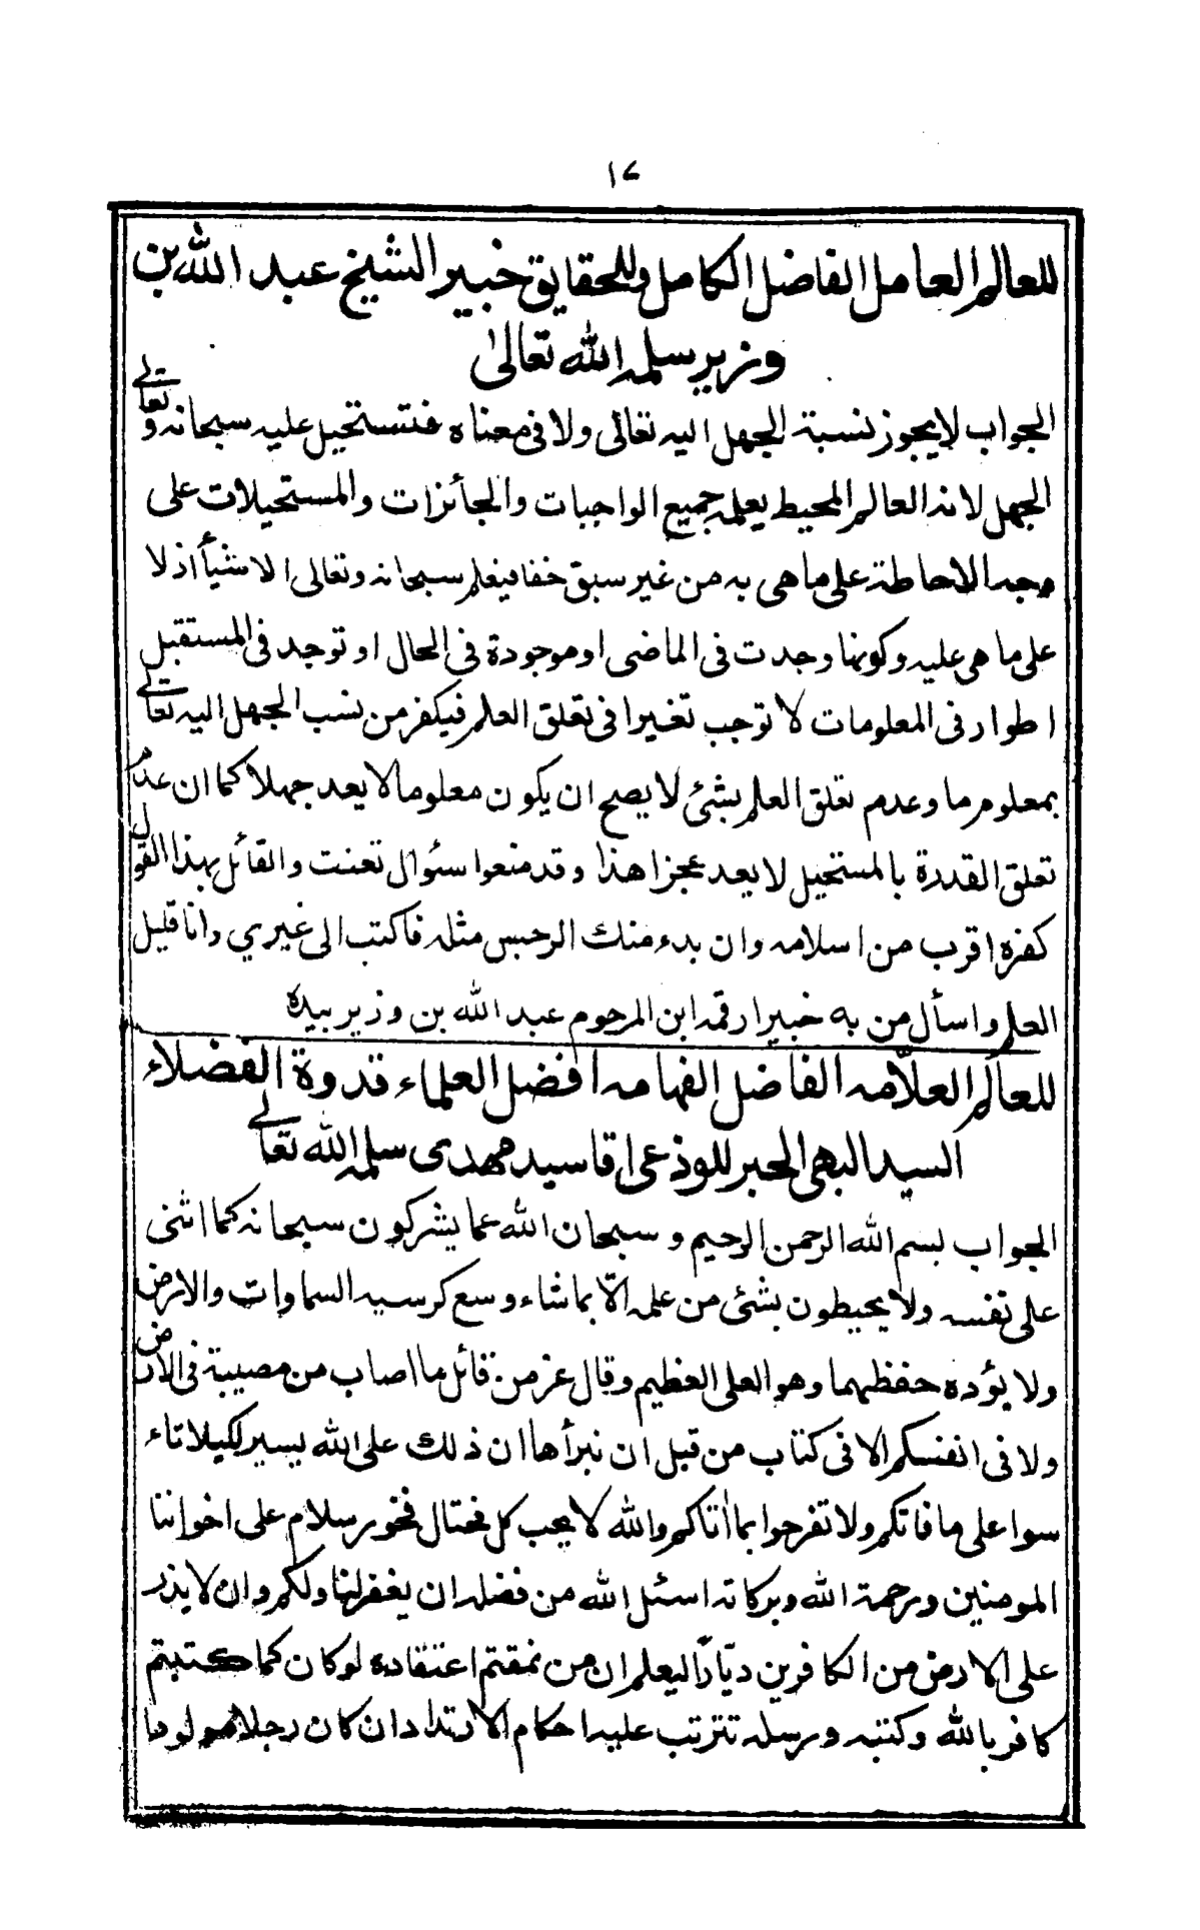 ١٤
للعالم العامل الفاضل الكامل وللحقايق خبير الشيخ عبد الله بن
وزير سلمه الله تعالى
الجواب لا يجوز نسبة الجهل اليه تعالى ولا فى معناه فتستحيل عليه سبحانه وتعالى
الجهل لانه العالم المحيط بعلمه جميع الواجبات والجائزات والمستحيلات على
وجه الاحاطة على ما هى به من غير سبق خفا فيعلم سبحانه وتعالى الاشيأ اذلا
على ما هى عليه وكونها وجدت فى الماضى او موجودة فى الحال او توجد فى المستقبل
اطوار فى المعلومات لا توجب تغيرا فى تعلق العلم فيكفر من نسب الجهل اليه تعالى
بمعلوم ما وعدم تعلق العلم بشئ لا يصح ان يكون معلوما لا يعد جهلا كما ان عدم
تعلق القدرة بالمستحيل لا يعد عجزا هذا وقد منعوا سئوال تعنت والقائل بهذا القول
كفره اقرب من اسلامه وان بدء منك الرجس مثله فاكتب الى غيري وانا قليل
العلم واسأل من به خبيرا رقمه ابن المرحوم عبد الله بن وزير بيده
للعالم العلّامه الفاضل الفهامه افضل العلماء قدوة الفضلاء
السيد البهى الحبر للوذعى اقا سيد مهدى سلمه الله تعالى
الجواب بسم الله الرحمن الرحيم وسبحان الله عما يشركون سبحانه كما اثنى
على نفسه ولا يحيطون بشئ من علمه الّا بما شاء وسع كرسيه السماوات والارض
ولا يؤده حفظهما وهو العلى العظيم وقال عز من قائل ما اصاب من مصيبة فى الارض
ولا فى انفسكم الا فى كتاب من قبل ان نبرأها ان ذلك على الله يسير لكيلا تاء
سوا على ما فاتكم ولا تفرحوا بما اتاكم والله لا يحب كل مختال فخور سلام على اخواننا
المومنين ورحمة الله وبركاته اسئل الله من فضله ان يغفر لنا ولكم وان لا يذر
على الارض من الكافرين ديّارًا ليعلم ان من نمقتم اعتقاده لو كان كما كتبتم
كافر بالله وكتبه ورسله تترتب عليه احكام الارتداد ان كان رجلا مولودا